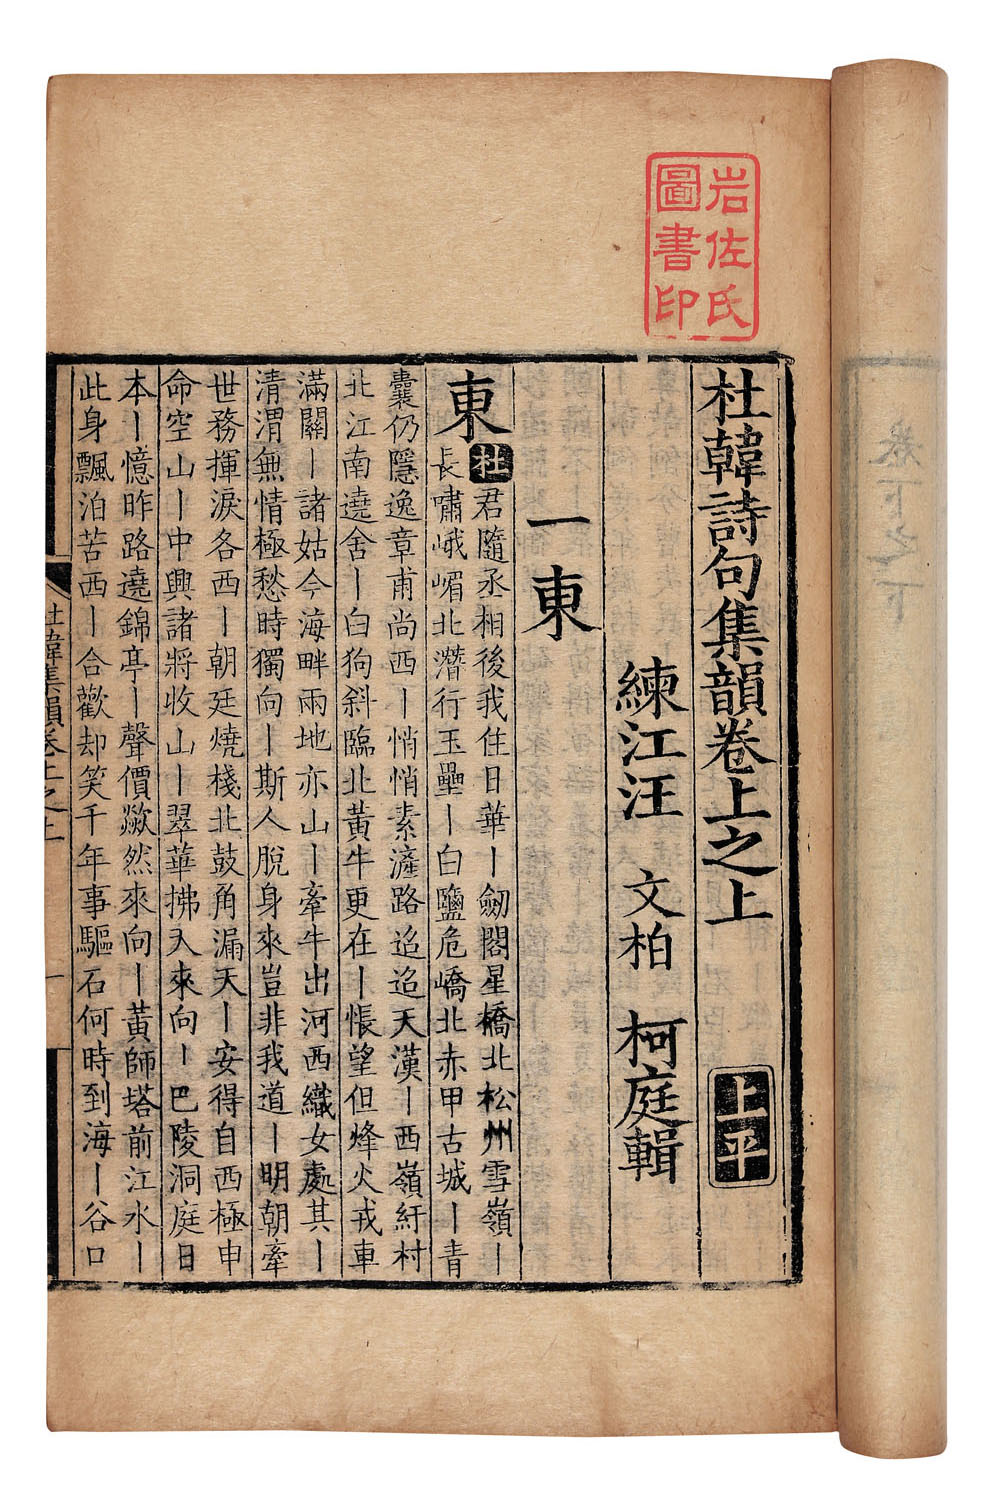 岩佐氏
圖書印
杜韓詩句集韻卷上之上 上平
練江汪 文柏 柯庭輯
一東
東 杜 君隨丞相後我住日華丨劒閣星橋北松州雪嶺丨
長嘯峨嵋北潛行玉壘丨白鹽危嶠北赤甲古城丨青
囊仍隱逸章甫尚西丨悄悄素滻路迢迢天漢丨西嶺紆村
北江南遶舍丨白狗斜臨北黃牛更在丨悵望但烽火戎車
滿關丨諸姑今海畔兩地亦山丨牽牛出河西織女處其丨
清渭無情極愁時獨向丨斯人脫身來豈非我道丨明朝牽
世務揮淚各西丨朝廷燒棧北鼓角漏天丨安得自西極申
命空山丨中興諸將收山丨翠華拂天來向丨巴陵洞庭日
本丨憶昨路遶錦亭丨聲價歘然來向丨黃師塔前江水丨
此身飄泊苦西丨合歡却笑千年事驅石何時到海丨谷口
杜韓集韻卷上之上 一